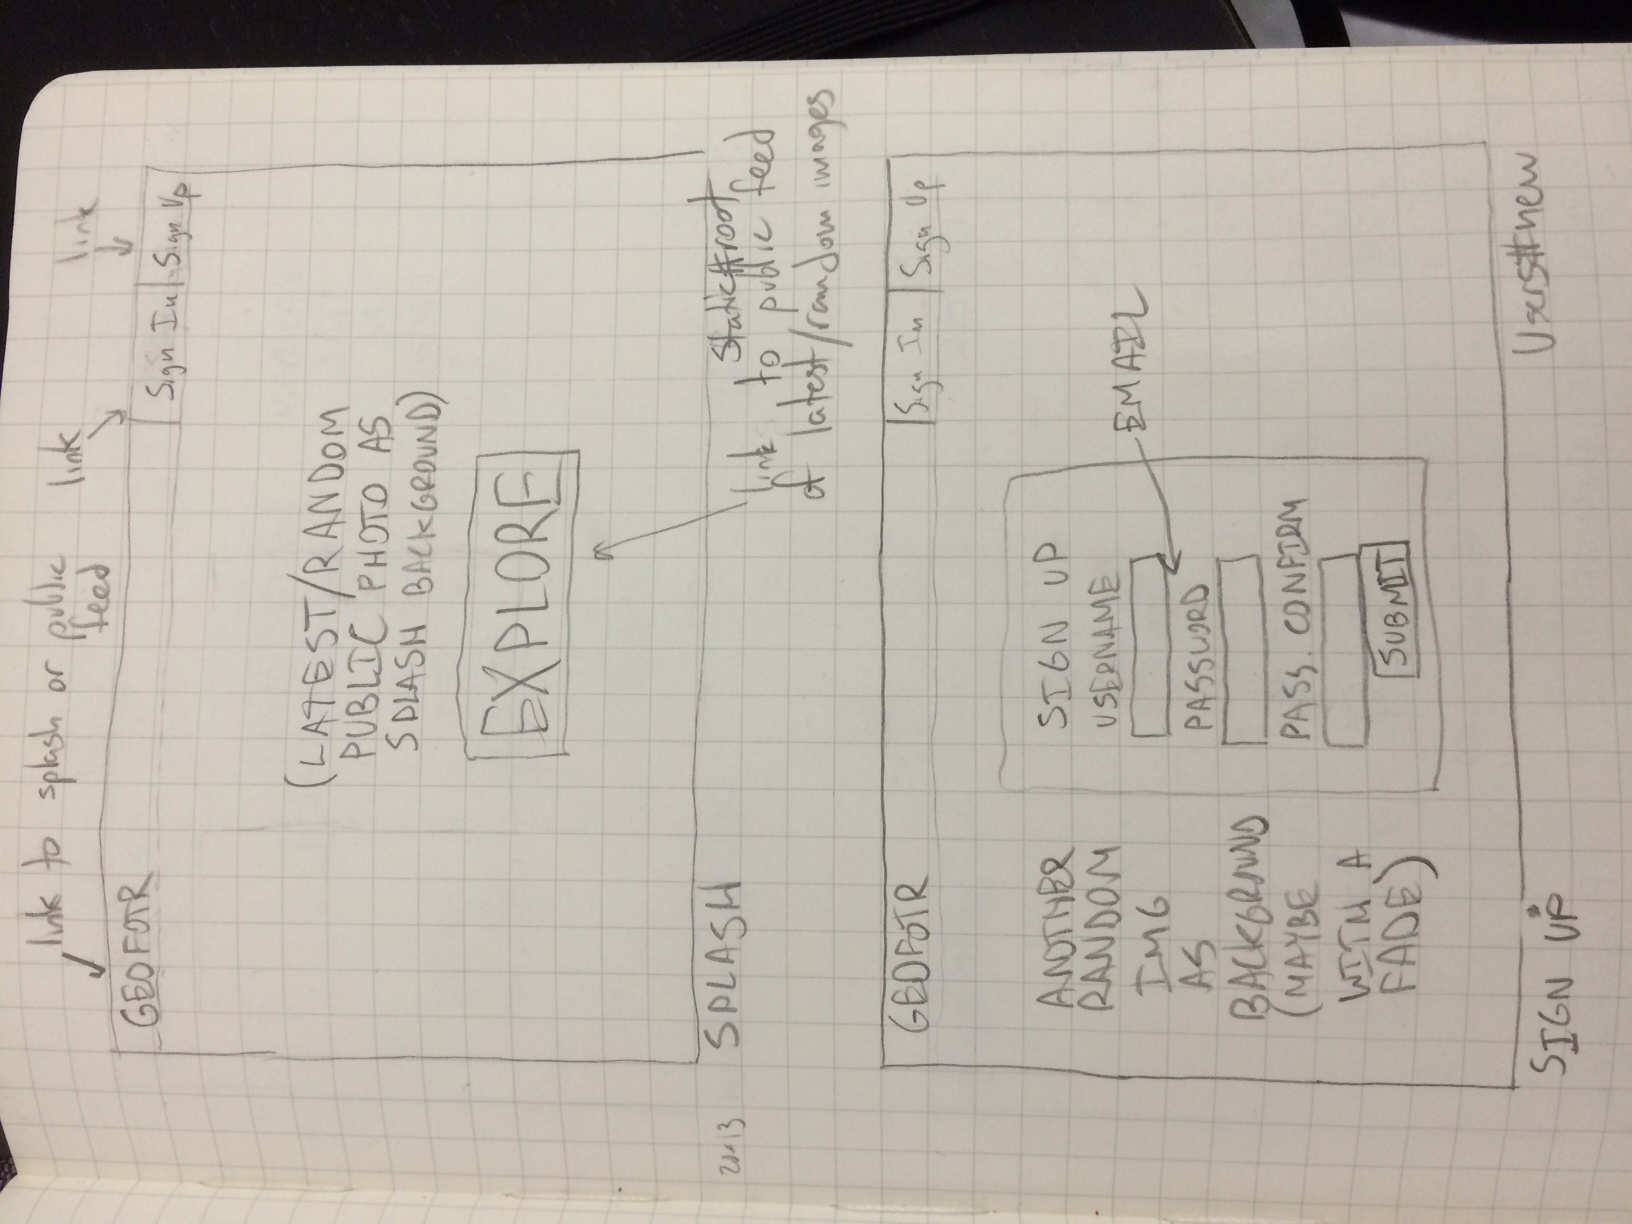 link to splash or public
feed
link
link
GEOFOTR
Sign In
Sign Up
(LATEST/RANDOM
PUBLIC PHOTO AS
SPLASH BACKGROUND)
EXPLORE
SPLASH
static#root
link to public feed
of latest/random images
GEOFOTR
Sign In
Sign Up
ANOTHER
RANDOM
IMG
AS
BACKGROUND
(MAYBE
WITH A
FADE)
SIGN UP
USERNAME
EMAIL
PASSWORD
PASS. CONFIRM
SUBMIT
SIGN UP
Users#new